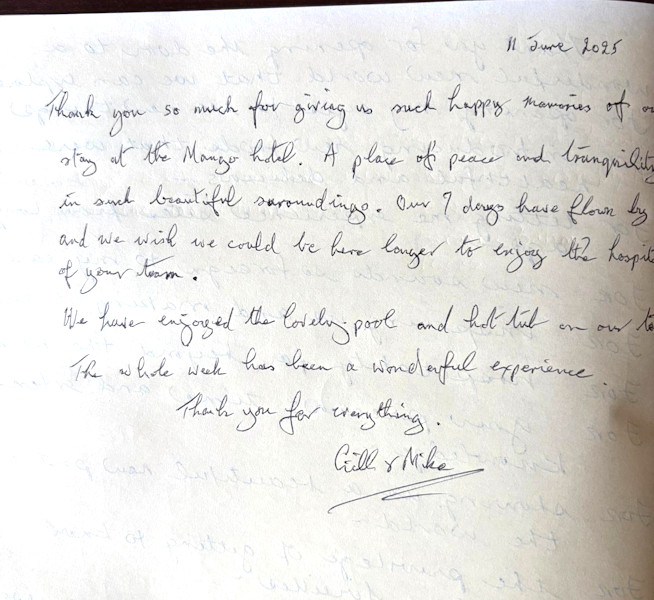 11 June 2025
Thank you so much for giving us such happy memories of
stay at the Mango hotel. A place of peace and tranquility
in such beautiful surroundings. Our 7 days have flown by
and we wish we could be here longer to enjoy the
of your team.
We have enjoyed the lovely pool and hot tub on our
The whole week has been a wonderful experience.
Thank you for everything.
& Mike